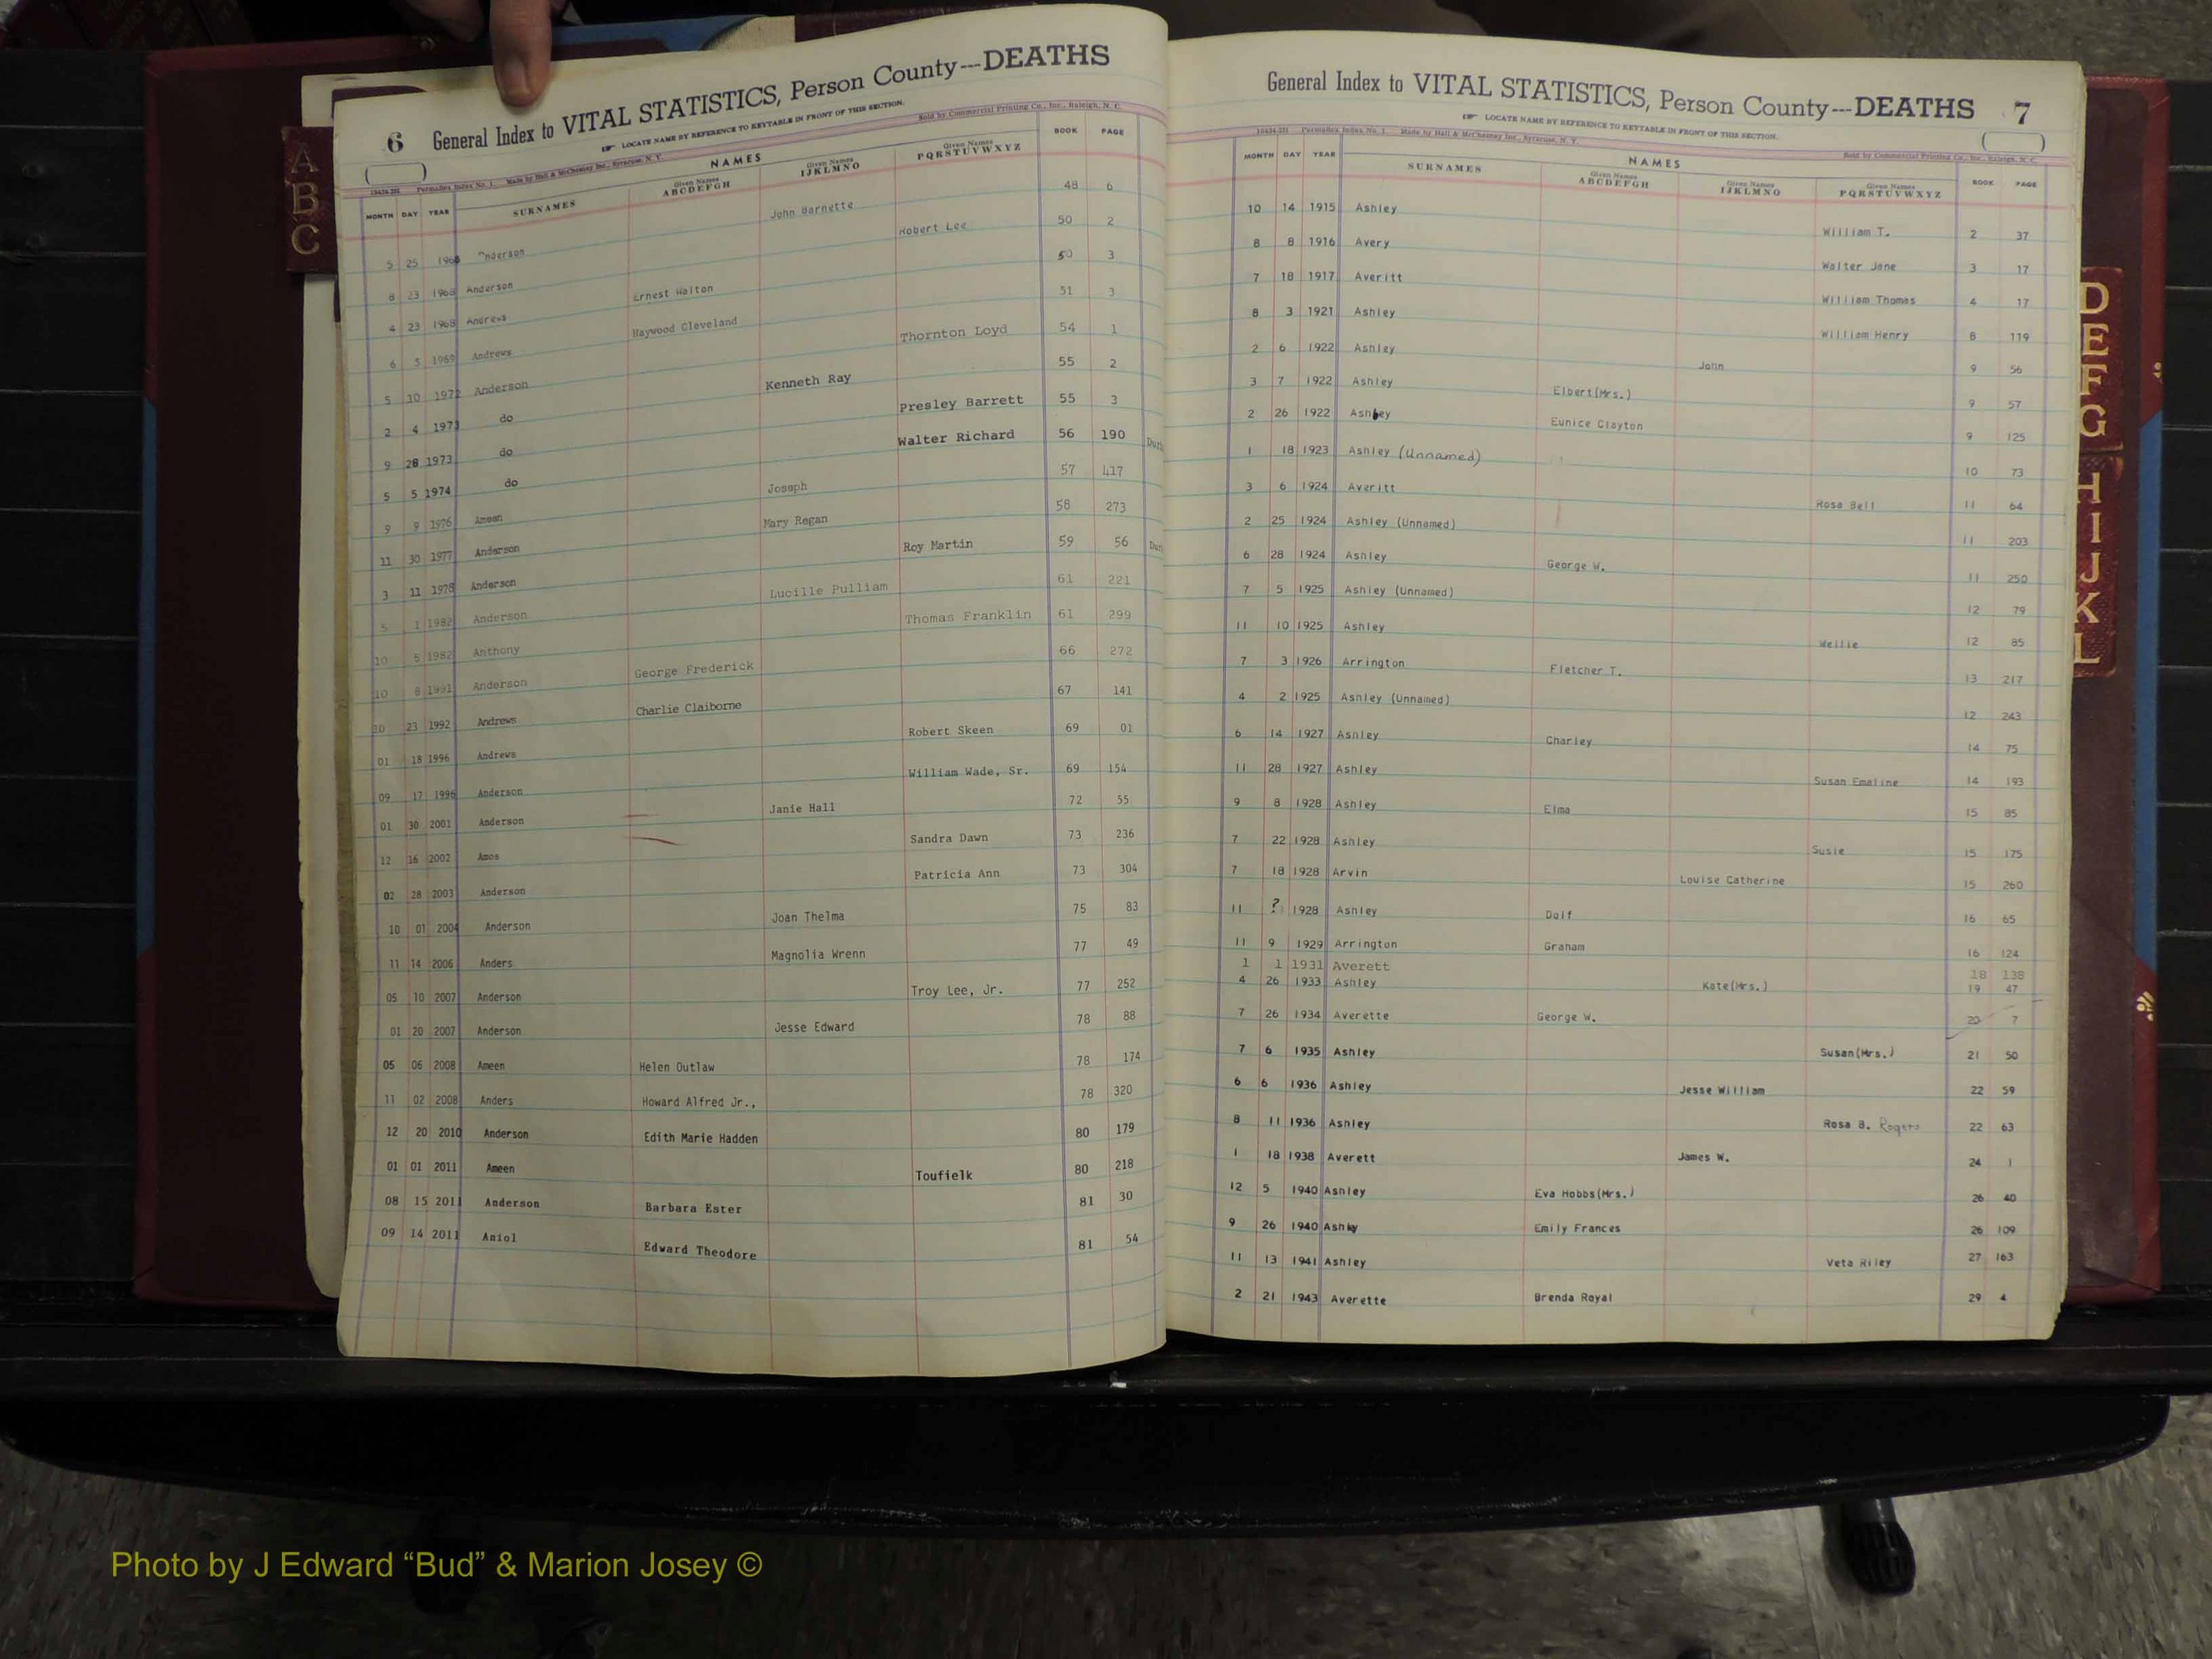 6 General Index to VITAL STATISTICS, Person County---DEATHS
LOCATE NAME BY REFERENCE TO KEYTABLE IN FRONT OF THIS SECTION.
Permadex Index No. 1. Made by Hall & McChesney Inc., Syracuse, N. Y. Sold by Commercial Printing Co., Inc., Raleigh, N. C.
NAMES
MONTH DAY YEAR SURNAMES Given Names ABCDEFGH Given Names IJKLMNO Given Names PQRSTUVWXYZ BOOK PAGE
5 25 1968 Anderson John Barnette 48 6
8 23 1968 Anderson Robert Lee 50 2
4 23 1968 Andrews Ernest Walton 50 3
6 5 1969 Andrews Haywood Cleveland 51 3
5 10 1972 Anderson Thornton Loyd 54 1
2 4 1973 do Kenneth Ray 55 2
9 28 1973 do Presley Barrett 55 3
5 5 1974 do Walter Richard 56 190
9 9 1976 Ameen Joseph 57 417
11 30 1977 Anderson Mary Regan 58 273
3 11 1978 Anderson Roy Martin 59 56
5 1 1982 Anderson Lucille Pulliam 61 221
10 5 1982 Anthony Thomas Franklin 61 299
10 8 1991 Anderson George Frederick 66 272
10 23 1992 Andrews Charlie Claiborne 67 141
01 18 1996 Andrews Robert Skeen 69 01
09 17 1996 Anderson William Wade, Sr. 69 154
01 30 2001 Anderson Janie Hall 72 55
12 16 2002 Amos Sandra Dawn 73 236
02 28 2003 Anderson Patricia Ann 73 304
10 01 2004 Anderson Joan Thelma 75 83
11 14 2006 Anders Magnolia Wrenn 77 49
05 10 2007 Anderson Troy Lee, Jr. 77 252
01 20 2007 Anderson Jesse Edward 78 88
05 06 2008 Ameen Helen Outlaw 78 174
11 02 2008 Anders Howard Alfred Jr., 78 320
12 20 2010 Anderson Edith Marie Hadden 80 179
01 01 2011 Ameen Toufielk 80 218
08 15 2011 Anderson Barbara Ester 81 30
09 14 2011 Aniol Edward Theodore 81 54
General Index to VITAL STATISTICS, Person County---DEATHS 7
LOCATE NAME BY REFERENCE TO KEYTABLE IN FRONT OF THIS SECTION.
Permadex Index No. 1. Made by Hall & McChesney Inc., Syracuse, N. Y. Sold by Commercial Printing Co., Inc., Raleigh, N. C.
NAMES
MONTH DAY YEAR SURNAMES Given Names ABCDEFGH Given Names IJKLMNO Given Names PQRSTUVWXYZ BOOK PAGE
10 14 1915 Ashley William T. 2 37
8 8 1916 Avery Walter Jane 3 17
7 18 1917 Averitt William Thomas 4 17
8 3 1921 Ashley William Henry 8 119
2 6 1922 Ashley John 9 56
3 7 1922 Ashley Elbert(Mrs.) 9 57
2 26 1922 Ashley Eunice Clayton 9 125
1 18 1923 Ashley (Unnamed) 10 73
3 6 1924 Averitt Rosa Bell 11 64
2 25 1924 Ashley (Unnamed) 11 203
6 28 1924 Ashley George W. 11 250
7 5 1925 Ashley (Unnamed) 12 79
11 10 1925 Ashley Wellie 12 85
7 3 1926 Arrington Fletcher T. 13 217
4 2 1925 Ashley (Unnamed) 12 243
6 14 1927 Ashley Charley 14 75
11 28 1927 Ashley Susan Emaline 14 193
9 8 1928 Ashley Elma 15 85
7 22 1928 Ashley Susie 15 175
7 18 1928 Arvin Louise Catherine 15 260
11 ? 1928 Ashley Dolf 16 65
11 9 1929 Arrington Graham 16 124
1 1 1931 Averett 18 138
4 26 1933 Ashley Kate(Mrs.) 19 47
7 26 1934 Averette George W. 20 7
7 6 1935 Ashley Susan(Mrs.) 21 50
6 6 1936 Ashley Jesse William 22 59
8 11 1936 Ashley Rosa B. Rogers 22 63
1 18 1938 Averett James W. 24 1
12 5 1940 Ashley Eva Hobbs(Mrs.) 26 40
9 26 1940 Ashley Emily Frances 26 109
11 13 1941 Ashley Veta Riley 27 163
2 21 1943 Averette Brenda Royal 29 4
A
B
C
D
E
F
G
H
I
J
K
L
Photo by J Edward “Bud” & Marion Josey ©